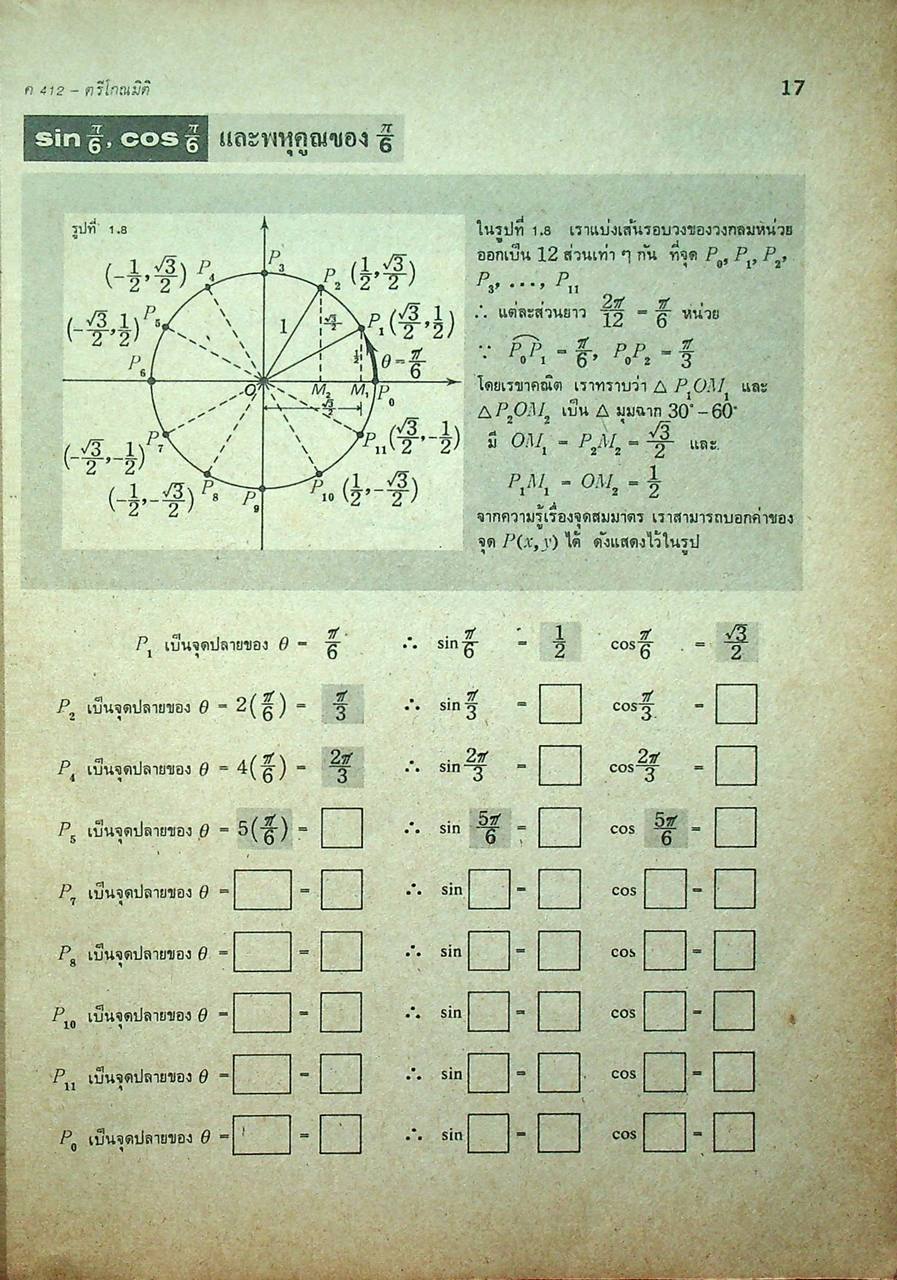 ค 412 – ตรีโกณมิติ
17
sin π/6, cos π/6 และพหุคูณของ π/6
รูปที่ 1.8
P₃
(-1/2, √3/2) P₄
P₂ (1/2, √3/2)
(-√3/2, 1/2) P₅
1
√3/2
P₁ (√3/2, 1/2)
1/2
θ = π/6
P₆
O
M₂
M₁
P₀
√3/2
(-√3/2, -1/2) P₇
P₁₁ (√3/2, -1/2)
(-1/2, -√3/2) P₈
P₉
P₁₀ (1/2, -√3/2)
ในรูปที่ 1.8 เราแบ่งเส้นรอบวงของวงกลมหน่วย
ออกเป็น 12 ส่วนเท่า ๆ กัน ที่จุด P₀, P₁, P₂,
P₃, ..., P₁₁
∴ แต่ละส่วนยาว 2π/12 = π/6 หน่วย
∵ P₀P₁ = π/6, P₀P₂ = π/3
โดยเรขาคณิต เราทราบว่า △ P₁OM₁ และ
△ P₂OM₂ เป็น △ มุมฉาก 30° – 60°
มี OM₁ = P₂M₂ = √3/2 และ
P₁M₁ = OM₂ = 1/2
จากความรู้เรื่องจุดสมมาตร เราสามารถบอกค่าของ
จุด P(x, y) ได้ ดังแสดงไว้ในรูป
P₁ เป็นจุดปลายของ θ = π/6 ∴ sin π/6 = 1/2 cos π/6 = √3/2
P₂ เป็นจุดปลายของ θ = 2(π/6) = π/3 ∴ sin π/3 = cos π/3 =
P₄ เป็นจุดปลายของ θ = 4(π/6) = 2π/3 ∴ sin 2π/3 = cos 2π/3 =
P₅ เป็นจุดปลายของ θ = 5(π/6) = ∴ sin 5π/6 = cos 5π/6 =
P₇ เป็นจุดปลายของ θ = = ∴ sin = cos =
P₈ เป็นจุดปลายของ θ = = ∴ sin = cos =
P₁₀ เป็นจุดปลายของ θ = = ∴ sin = cos =
P₁₁ เป็นจุดปลายของ θ = = ∴ sin = cos =
P₀ เป็นจุดปลายของ θ = = ∴ sin = cos =